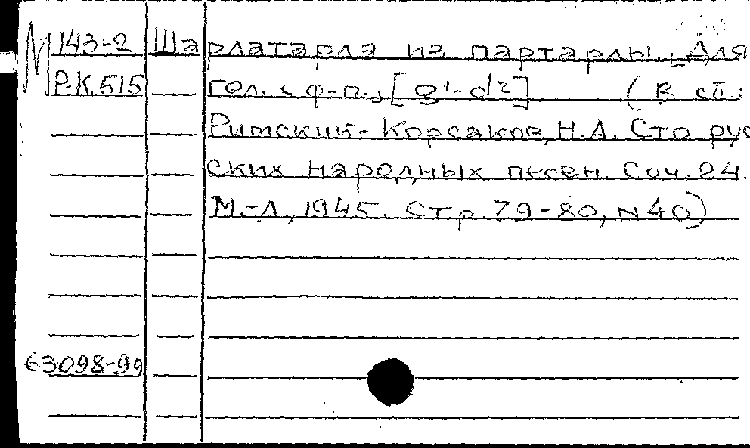 М 143-2 Шарлатарла из партарлы. Для
Р.К.515 гол. с ф-п., [g¹-d²] (В сб.:
Римский-Корсаков, Н.А. Сто рус
ских народных песен. Соч. 24.
М.-Л., 1945. Стр. 79-80, N40)
63098-99